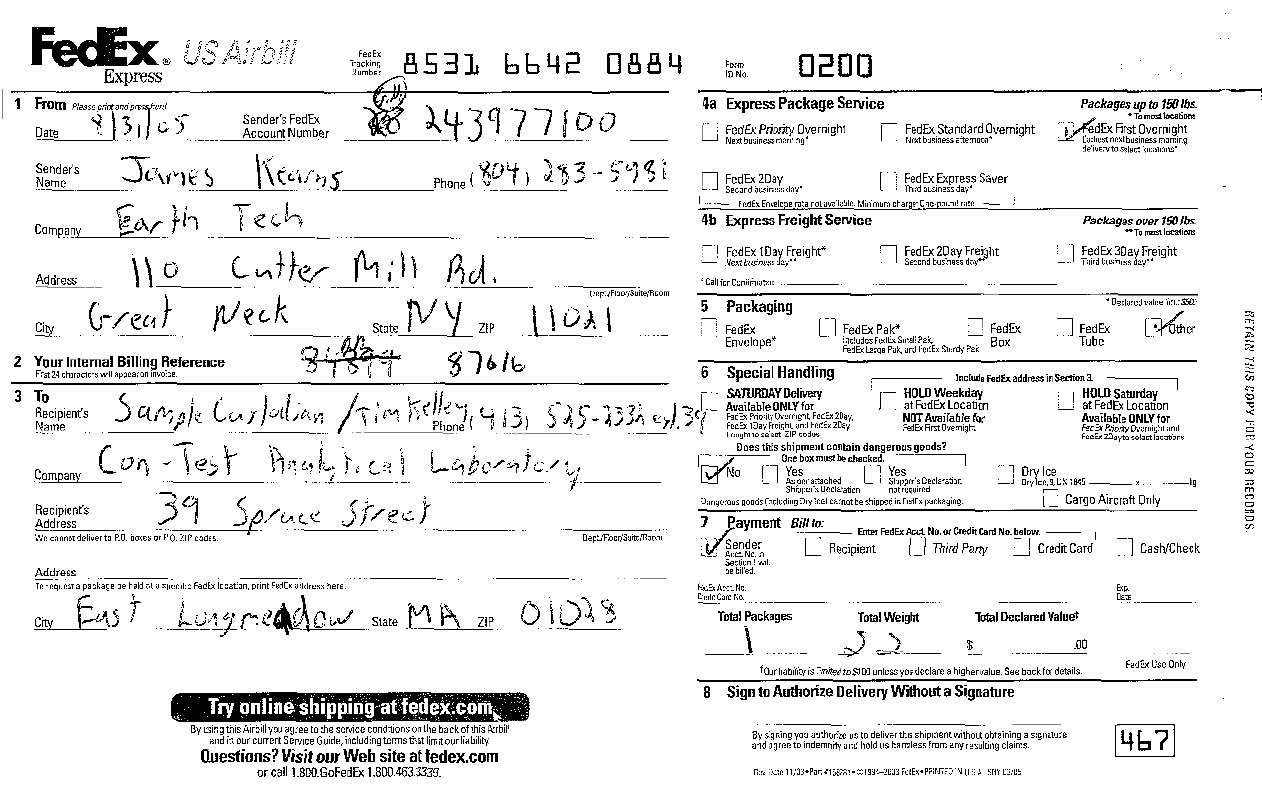 FedEx® US Airbill
Express
FedEx Tracking Number 8531 6642 0884
Form ID No. 0200
1 From Please print and press hard
Date 8/31/05 Sender's FedEx Account Number 243977100
Sender's Name James Kearns Phone (804) 283-5981
Company Earth Tech
Address 110 Cutter Mill Rd.
Dept./Floor/Suite/Room
City Great Neck State NY ZIP 11021
2 Your Internal Billing Reference 87616
First 24 characters will appear on invoice.
3 To
Recipient's Name Sample Custodian / Tim Kelley Phone (413) 525-2332 ext 39
Company Con-Test Analytical Laboratory
Recipient's Address 39 Spruce Street
We cannot deliver to P.O. boxes or P.O. ZIP codes. Dept./Floor/Suite/Room
Address
To request a package be held at a specific FedEx location, print FedEx address here.
City East Longmeadow State MA ZIP 01028
Try online shipping at fedex.com
By using this Airbill you agree to the service conditions on the back of this Airbill
and in our current Service Guide, including terms that limit our liability.
Questions? Visit our Web site at fedex.com
or call 1.800.GoFedEx 1.800.463.3339.
4a Express Package Service Packages up to 150 lbs.
* To most locations
FedEx Priority Overnight FedEx Standard Overnight FedEx First Overnight
Next business morning* Next business afternoon* Earliest next business morning
delivery to select locations*
FedEx 2Day FedEx Express Saver
Second business day* Third business day*
FedEx Envelope rate not available. Minimum charge: One-pound rate
4b Express Freight Service Packages over 150 lbs.
** To most locations
FedEx 1Day Freight* FedEx 2Day Freight FedEx 3Day Freight
Next business day** Second business day** Third business day**
* Call for Confirmation
5 Packaging * Declared value limit $500
FedEx Envelope* FedEx Pak* FedEx Box FedEx Tube Other
Includes FedEx Small Pak,
FedEx Large Pak, and FedEx Sturdy Pak
6 Special Handling Include FedEx address in Section 3.
SATURDAY Delivery HOLD Weekday HOLD Saturday
Available ONLY for at FedEx Location at FedEx Location
FedEx Priority Overnight, FedEx 2Day, NOT Available for Available ONLY for
FedEx 1Day Freight, and FedEx 2Day FedEx First Overnight FedEx Priority Overnight and
Freight to select ZIP codes FedEx 2Day to select locations
Does this shipment contain dangerous goods?
One box must be checked.
No Yes Yes Dry Ice
As per attached Shipper's Declaration Dry Ice, 9, UN 1845 x kg
Shipper's Declaration not required
Dangerous goods (including Dry Ice) cannot be shipped in FedEx packaging. Cargo Aircraft Only
7 Payment Bill to: Enter FedEx Acct. No. or Credit Card No. below.
Sender Recipient Third Party Credit Card Cash/Check
Acct. No. in
Section 1 will
be billed.
FedEx Acct. No. Exp.
Credit Card No. Date
Total Packages Total Weight Total Declared Value†
1 22 $ .00
†Our liability is limited to $100 unless you declare a higher value. See back for details. FedEx Use Only
8 Sign to Authorize Delivery Without a Signature
By signing you authorize us to deliver this shipment without obtaining a signature
and agree to indemnify and hold us harmless from any resulting claims.
467
Rev. Date 11/03•Part #158281•©1994–2003 FedEx•PRINTED IN U.S.A. SRY 03/05
RETAIN THIS COPY FOR YOUR RECORDS.